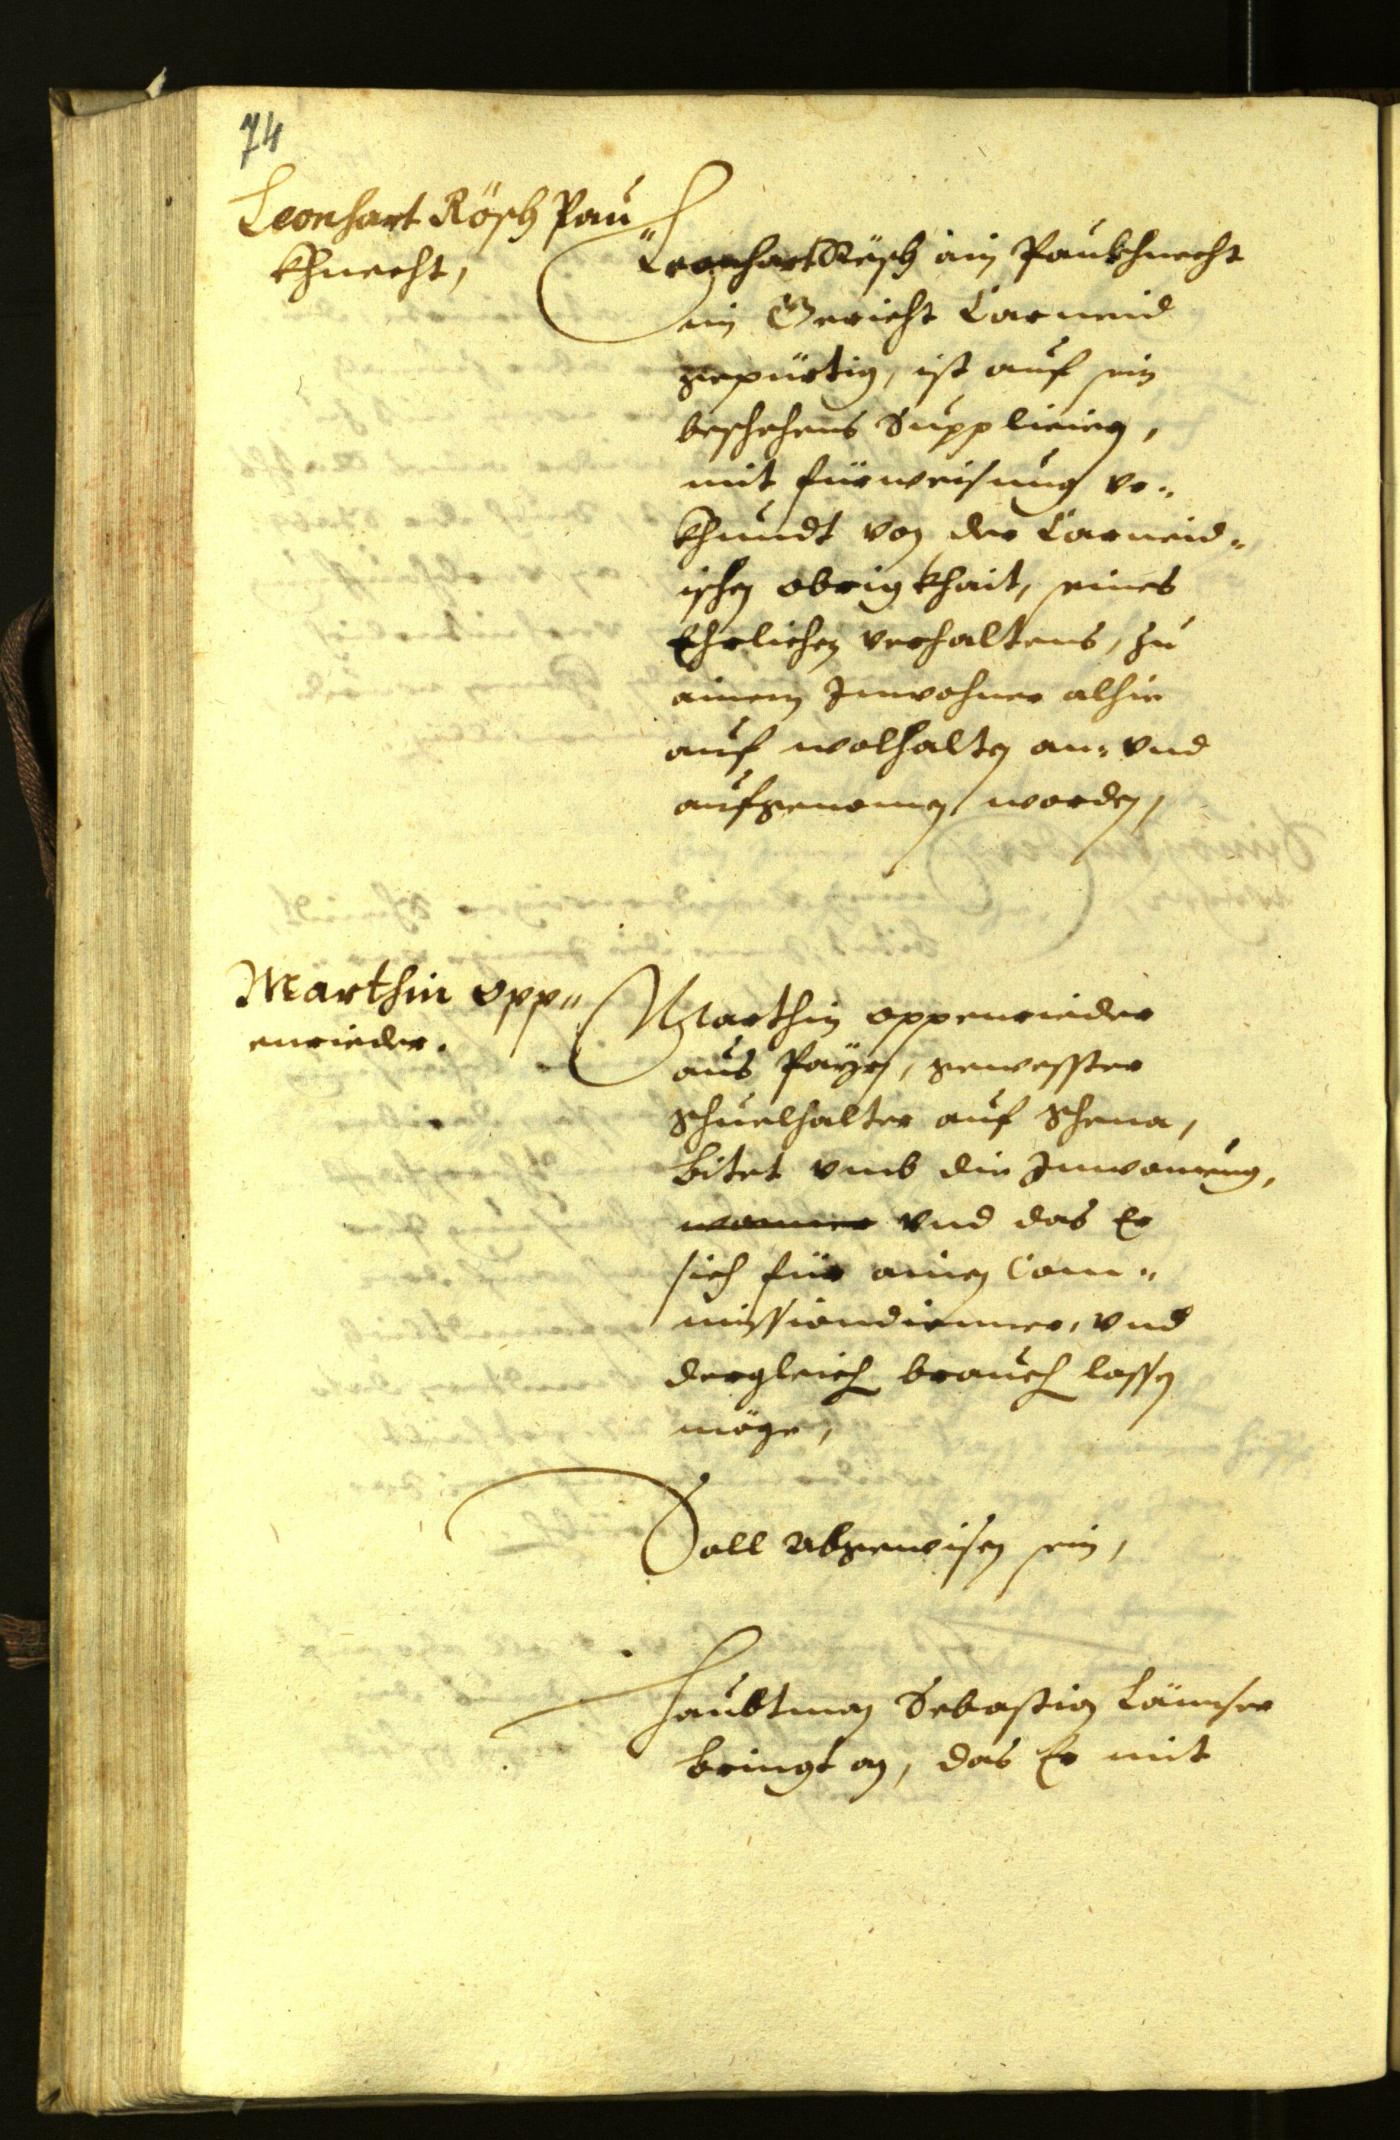 74
Leonhart Rösch Pau
khnecht,
Leonhart Rösch ain Paukhnecht
im Gericht Carneid
gepürtig, ist auf sein
beschehens Suppliciern,
mit fürweisung vr„
khundt von der Carneid„
ischen obrigkhait, seines
Ehrlichen verhaltens, zu
ainem Inwohner alhie
auf wolhalten an„ vnd
aufgenomen worden,
Marthin Opp„
enrieder.
Marthin Oppenrieder
aus Payrn, gewesster
Schuelhalter auf Schena,
bitet vmb die Inwonung,
vnd das Er
sich für ainen Com„
missiondiener, vnd
dergleichen brauchen lassen
möge,
Soll Abgewisen sein,
Haubtman Sebastian
bringt an, das Er mit